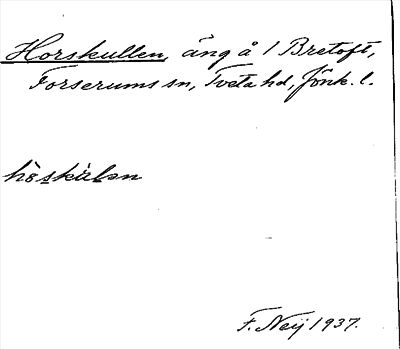 Horskullen, äng å 1 Bretoft,
Forserums sn, Tveta hd, Jönk. l.
höskälen
F. Neij 1937.